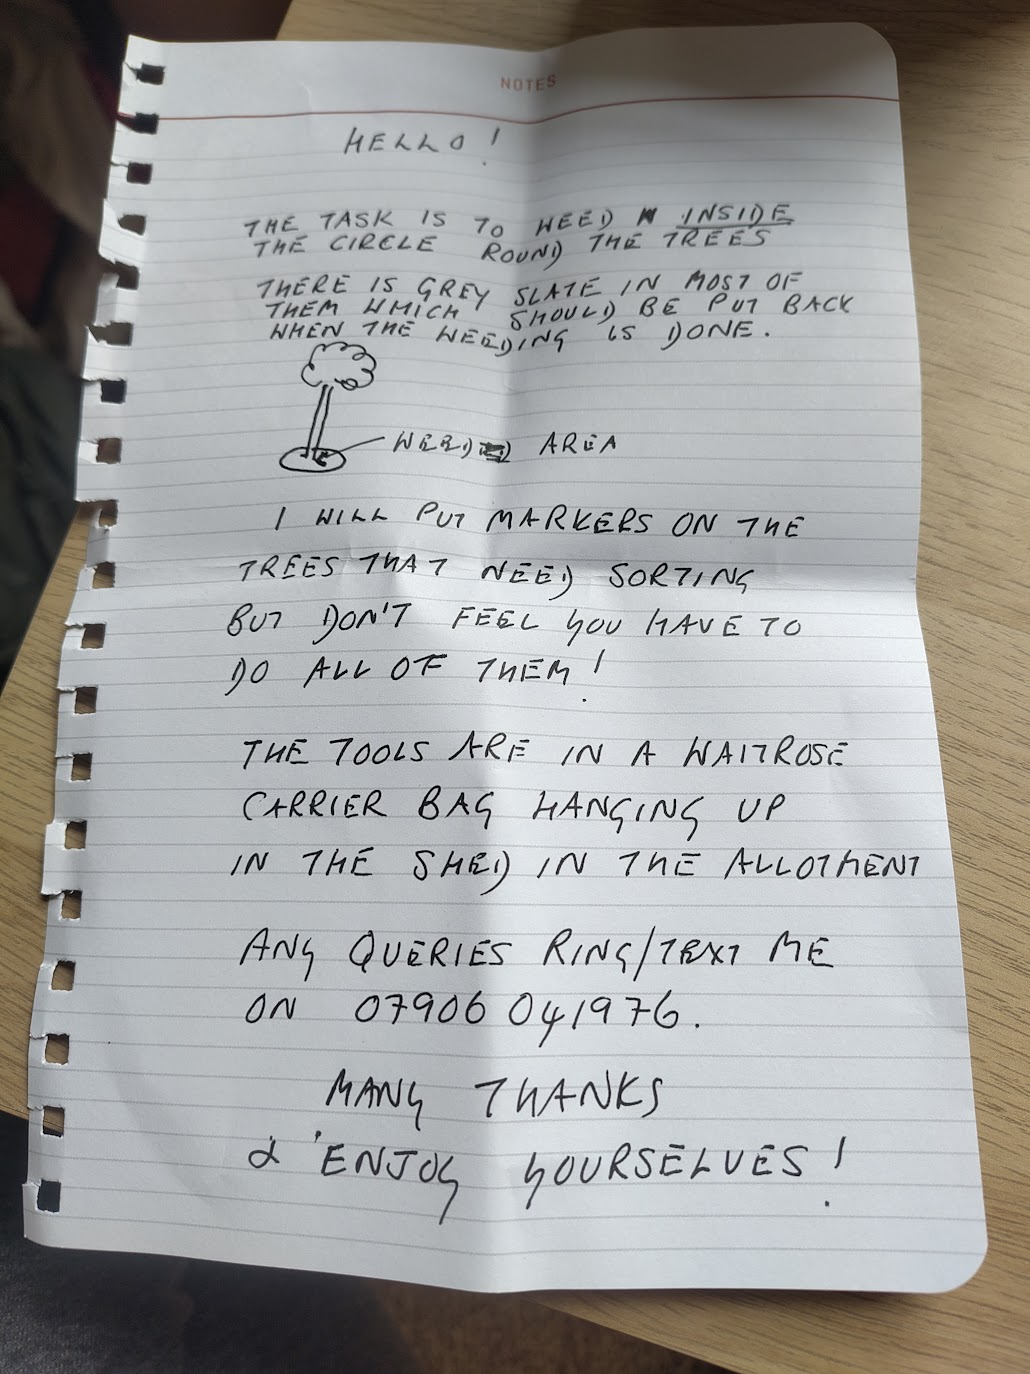 NOTES
HELLO!
THE TASK IS TO WEED INSIDE
THE CIRCLE ROUND THE TREES
THERE IS GREY SLATE IN MOST OF
THEM WHICH SHOULD BE PUT BACK
WHEN THE WEEDING IS DONE.
WEED AREA
I WILL PUT MARKERS ON THE
TREES THAT NEED SORTING
BUT DON'T FEEL YOU HAVE TO
DO ALL OF THEM!
THE TOOLS ARE IN A WAITROSE
CARRIER BAG HANGING UP
IN THE SHED IN THE ALLOTMENT
ANY QUERIES RING/TEXT ME
ON 07906 041976.
MANY THANKS
& ENJOY YOURSELVES!